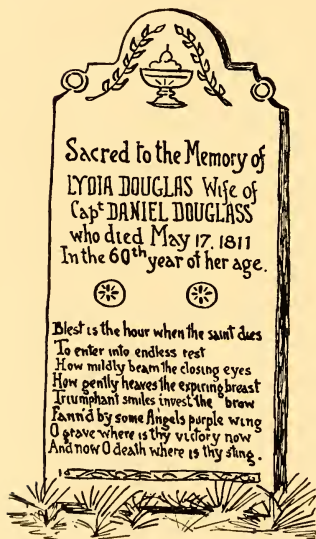 Sacred to the Memory of
LYDIA DOUGLAS Wife of
Capt DANIEL DOUGLASS
who died May 17. 1811
In the 60th year of her age.
Blest is the hour when the saint dies
To enter into endless rest
How mildly beam the closing eyes
How gently heaves the expiring breast
Triumphant smiles invest the brow
Fann'd by some Angels purple wing
O grave where is thy victory now
And now O death where is thy sting.